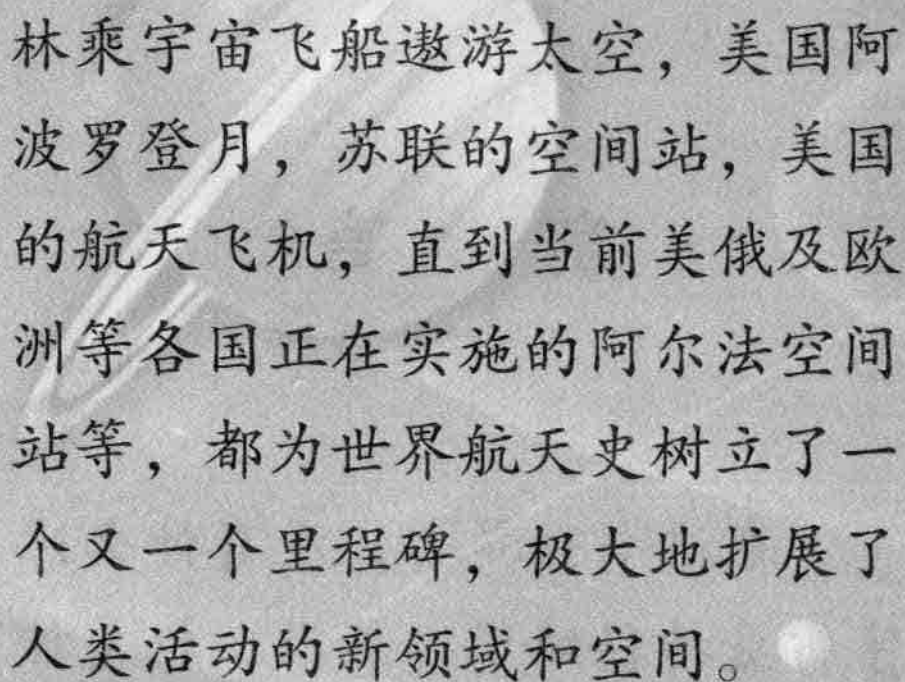 林乘宇宙飞船遨游太空，美国阿
波罗登月，苏联的空间站，美国
的航天飞机，直到当前美俄及欧
洲等各国正在实施的阿尔法空间
站等，都为世界航天史树立了一
个又一个里程碑，极大地扩展了
人类活动的新领域和空间。